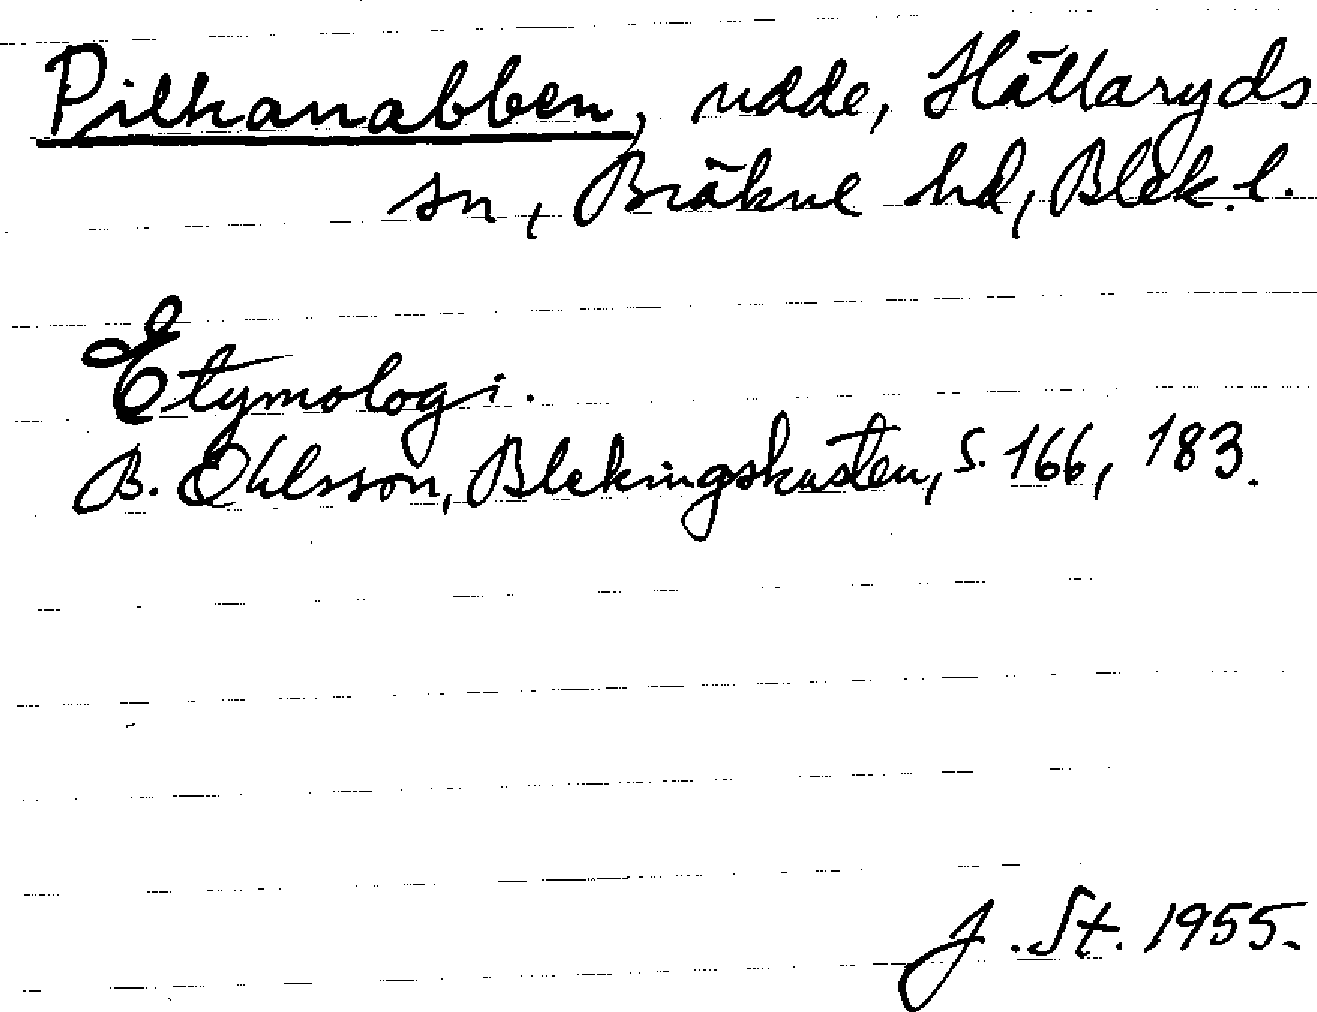 Pilkanabben, udde, Hällaryds
sn, Bräkne hd, Blek. l.
Etymologi.
B. Ohlsson, Blekingskusten, s. 166, 183.
J. St. 1955.